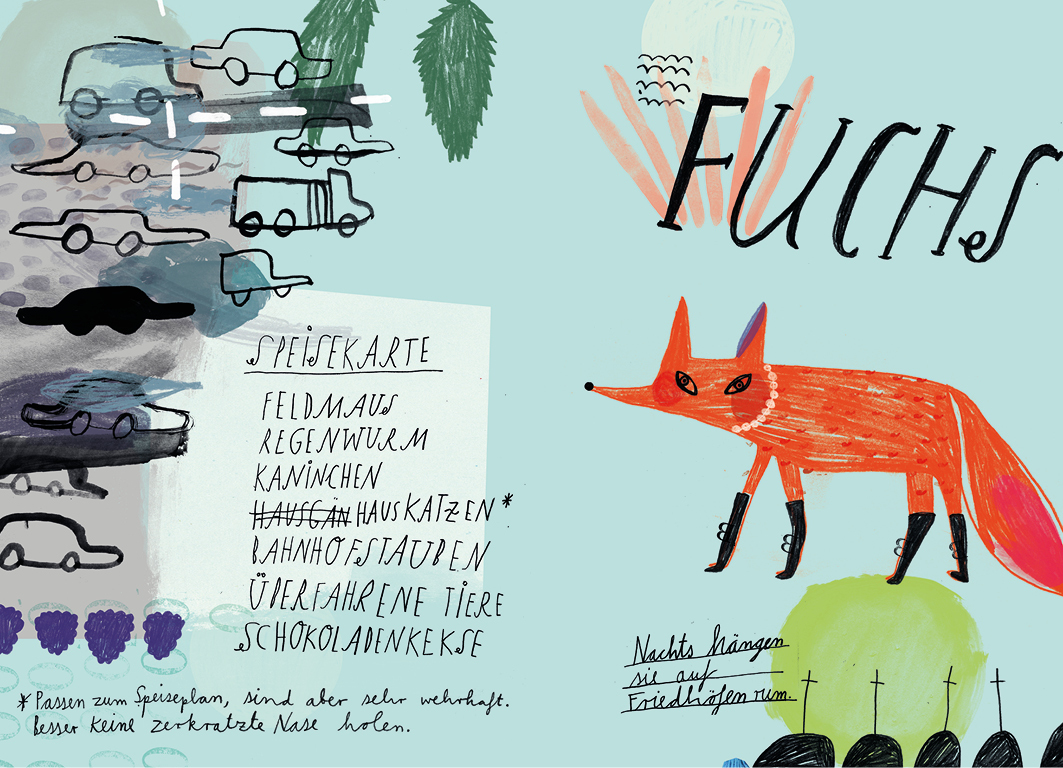 SPEISEKARTE
FELDMAUS
REGENWURM
KANINCHEN
HAUSGÄN HAUSKATZEN*
BAHNHOFSTAUBEN
ÜBERFAHRENE TIERE
SCHOKOLADENKEKSE
* Passen zum Speiseplan, sind aber sehr wehrhaft.
Besser keine zerkratzte Nase holen.
FUCHS
Nachts hängen
sie auf
Friedhöfen rum.